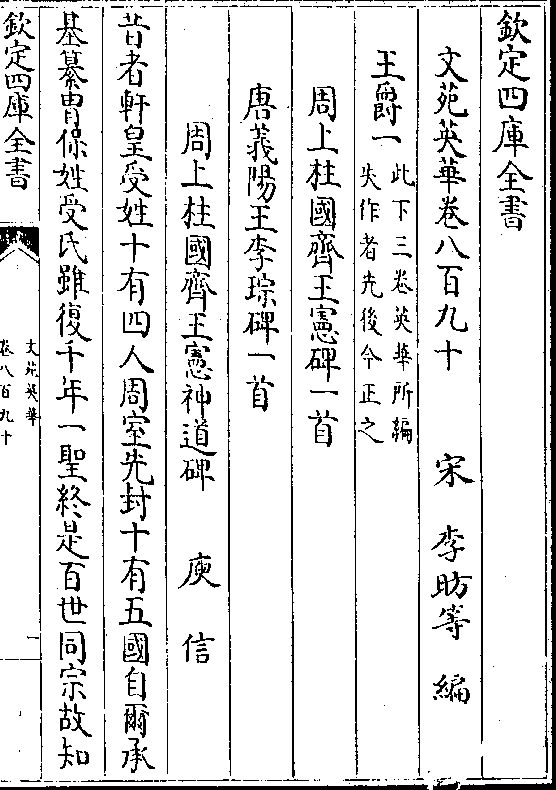 欽定四庫全書
文苑英華卷八百九十
宋 李昉等 編
王爵一
此下三卷英華所編
失作者先後今正之
周上柱國齊王憲碑一首
唐義陽王李琮碑一首
周上柱國齊王憲神道碑 庾信
昔者軒皇受姓十有四人周室先封十有五國自爾承
基纂胄保姓受氏雖復千年一聖終是百世同宗故知
欽定四庫全書
文苑英華
卷八百九十
一